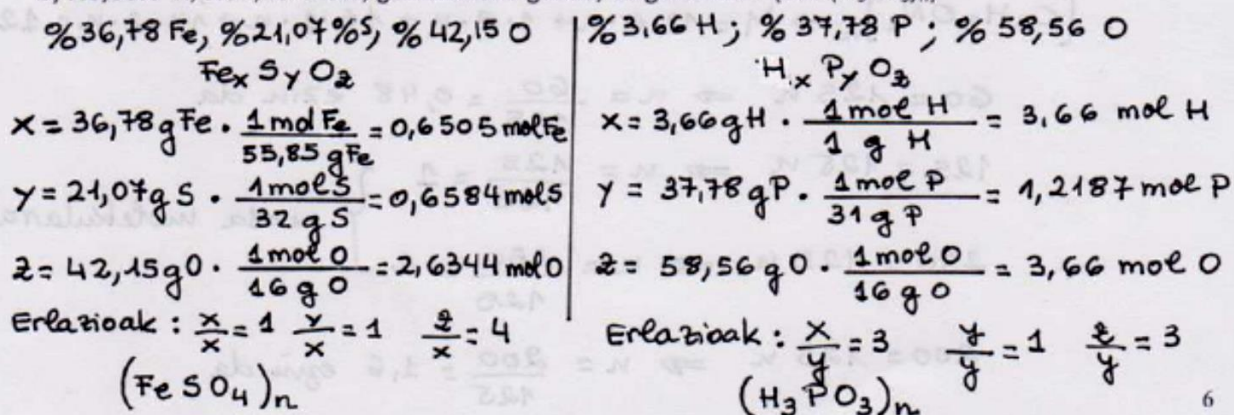 %36,78 Fe, %21,07%S, %42,15 O
FexSyOz
x = 36,78 g Fe · 1 mol Fe / 55,85 g Fe = 0,6505 mol Fe
y = 21,07 g S · 1 mol S / 32 g S = 0,6584 mol S
z = 42,15 g O · 1 mol O / 16 g O = 2,6344 mol O
Erlazioak : x/x = 1 y/x = 1 z/x = 4
(FeSO4)n
%3,66 H ; %37,78 P ; %58,56 O
HxPyOz
x = 3,66 g H · 1 mol H / 1 g H = 3,66 mol H
y = 37,78 g P · 1 mol P / 31 g P = 1,2187 mol P
z = 58,56 g O · 1 mol O / 16 g O = 3,66 mol O
Erlazioak : x/y = 3 y/y = 1 z/y = 3
(H3PO3)n
6